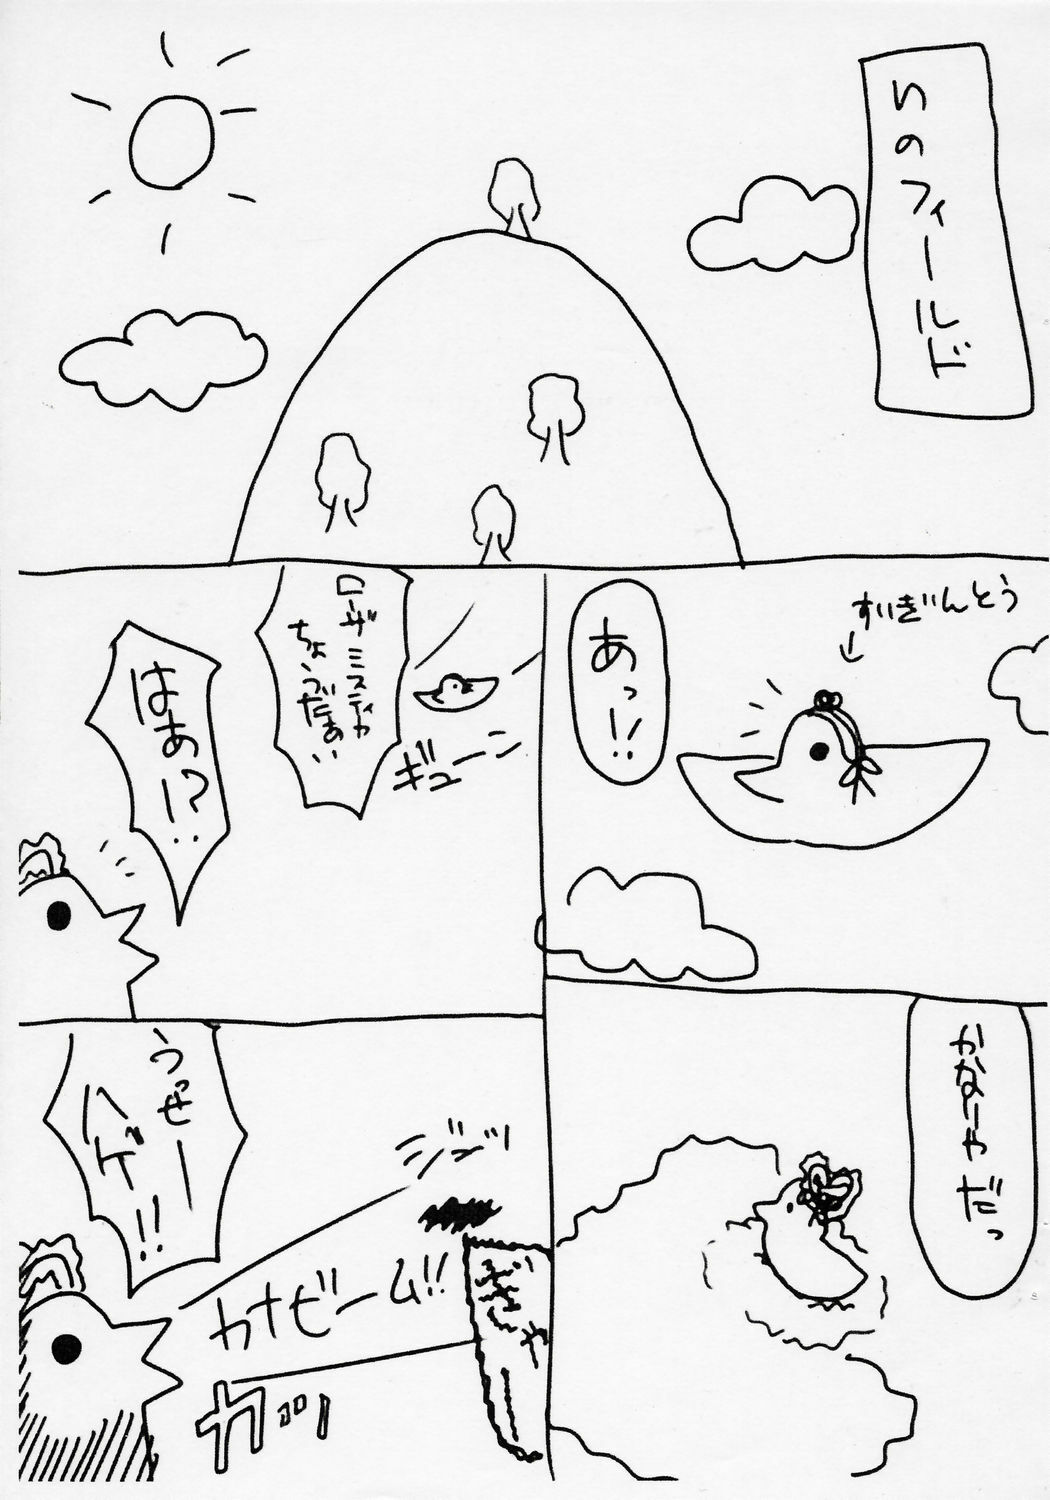 いのフィールド
すいぎんとう
あっ!!
ローザミスティカ
ちょうだぁい
ギューン
はぁ!?
かなりやーだっ
うっぜー
ハゲ!!
ジジッ
カナビーム!!
ぎ
ゃ
ガッ